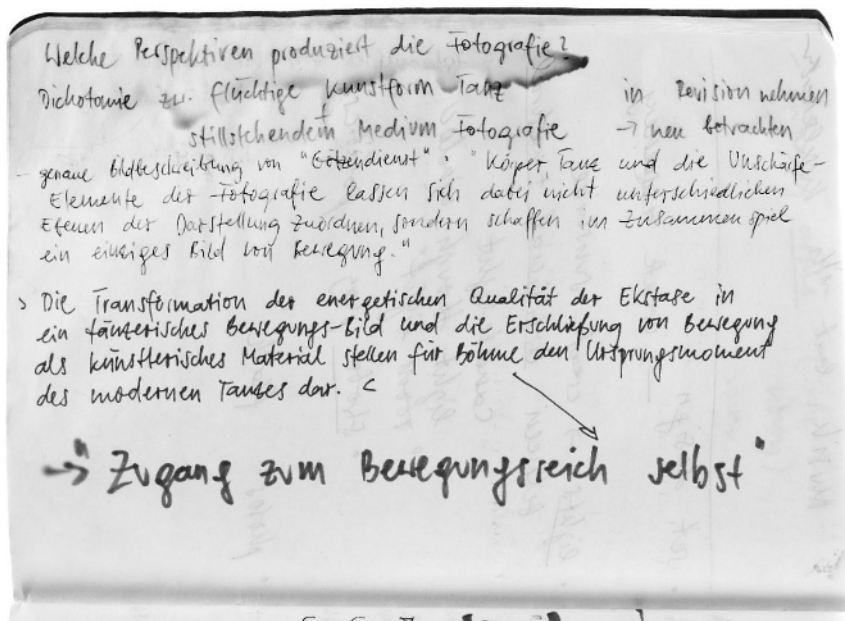 Welche Perspektiven produziert die Fotografie?
Dichotomie zw. flüchtige Kunstform Tanz in Revision nehmen
+
stillstehendem Medium Fotografie → neu betrachten
- genaue Bildbeschreibung von "Götzendienst". "Körper, Tanz und die Unschärfe-
Elemente der Fotografie lassen sich dabei nicht unterschiedlichen
Ebenen der Darstellung zuordnen, sondern schaffen im Zusammenspiel
ein einziges Bild von Bewegung."
> Die Transformation der energetischen Qualität der Ekstase in
ein tänzerisches Bewegungs-Bild und die Erschließung von Bewegung
als künstlerisches Material stellen für Böhme den Ursprungsmoment
des modernen Tanzes dar. <
→ "Zugang zum Bewegungsreich selbst"